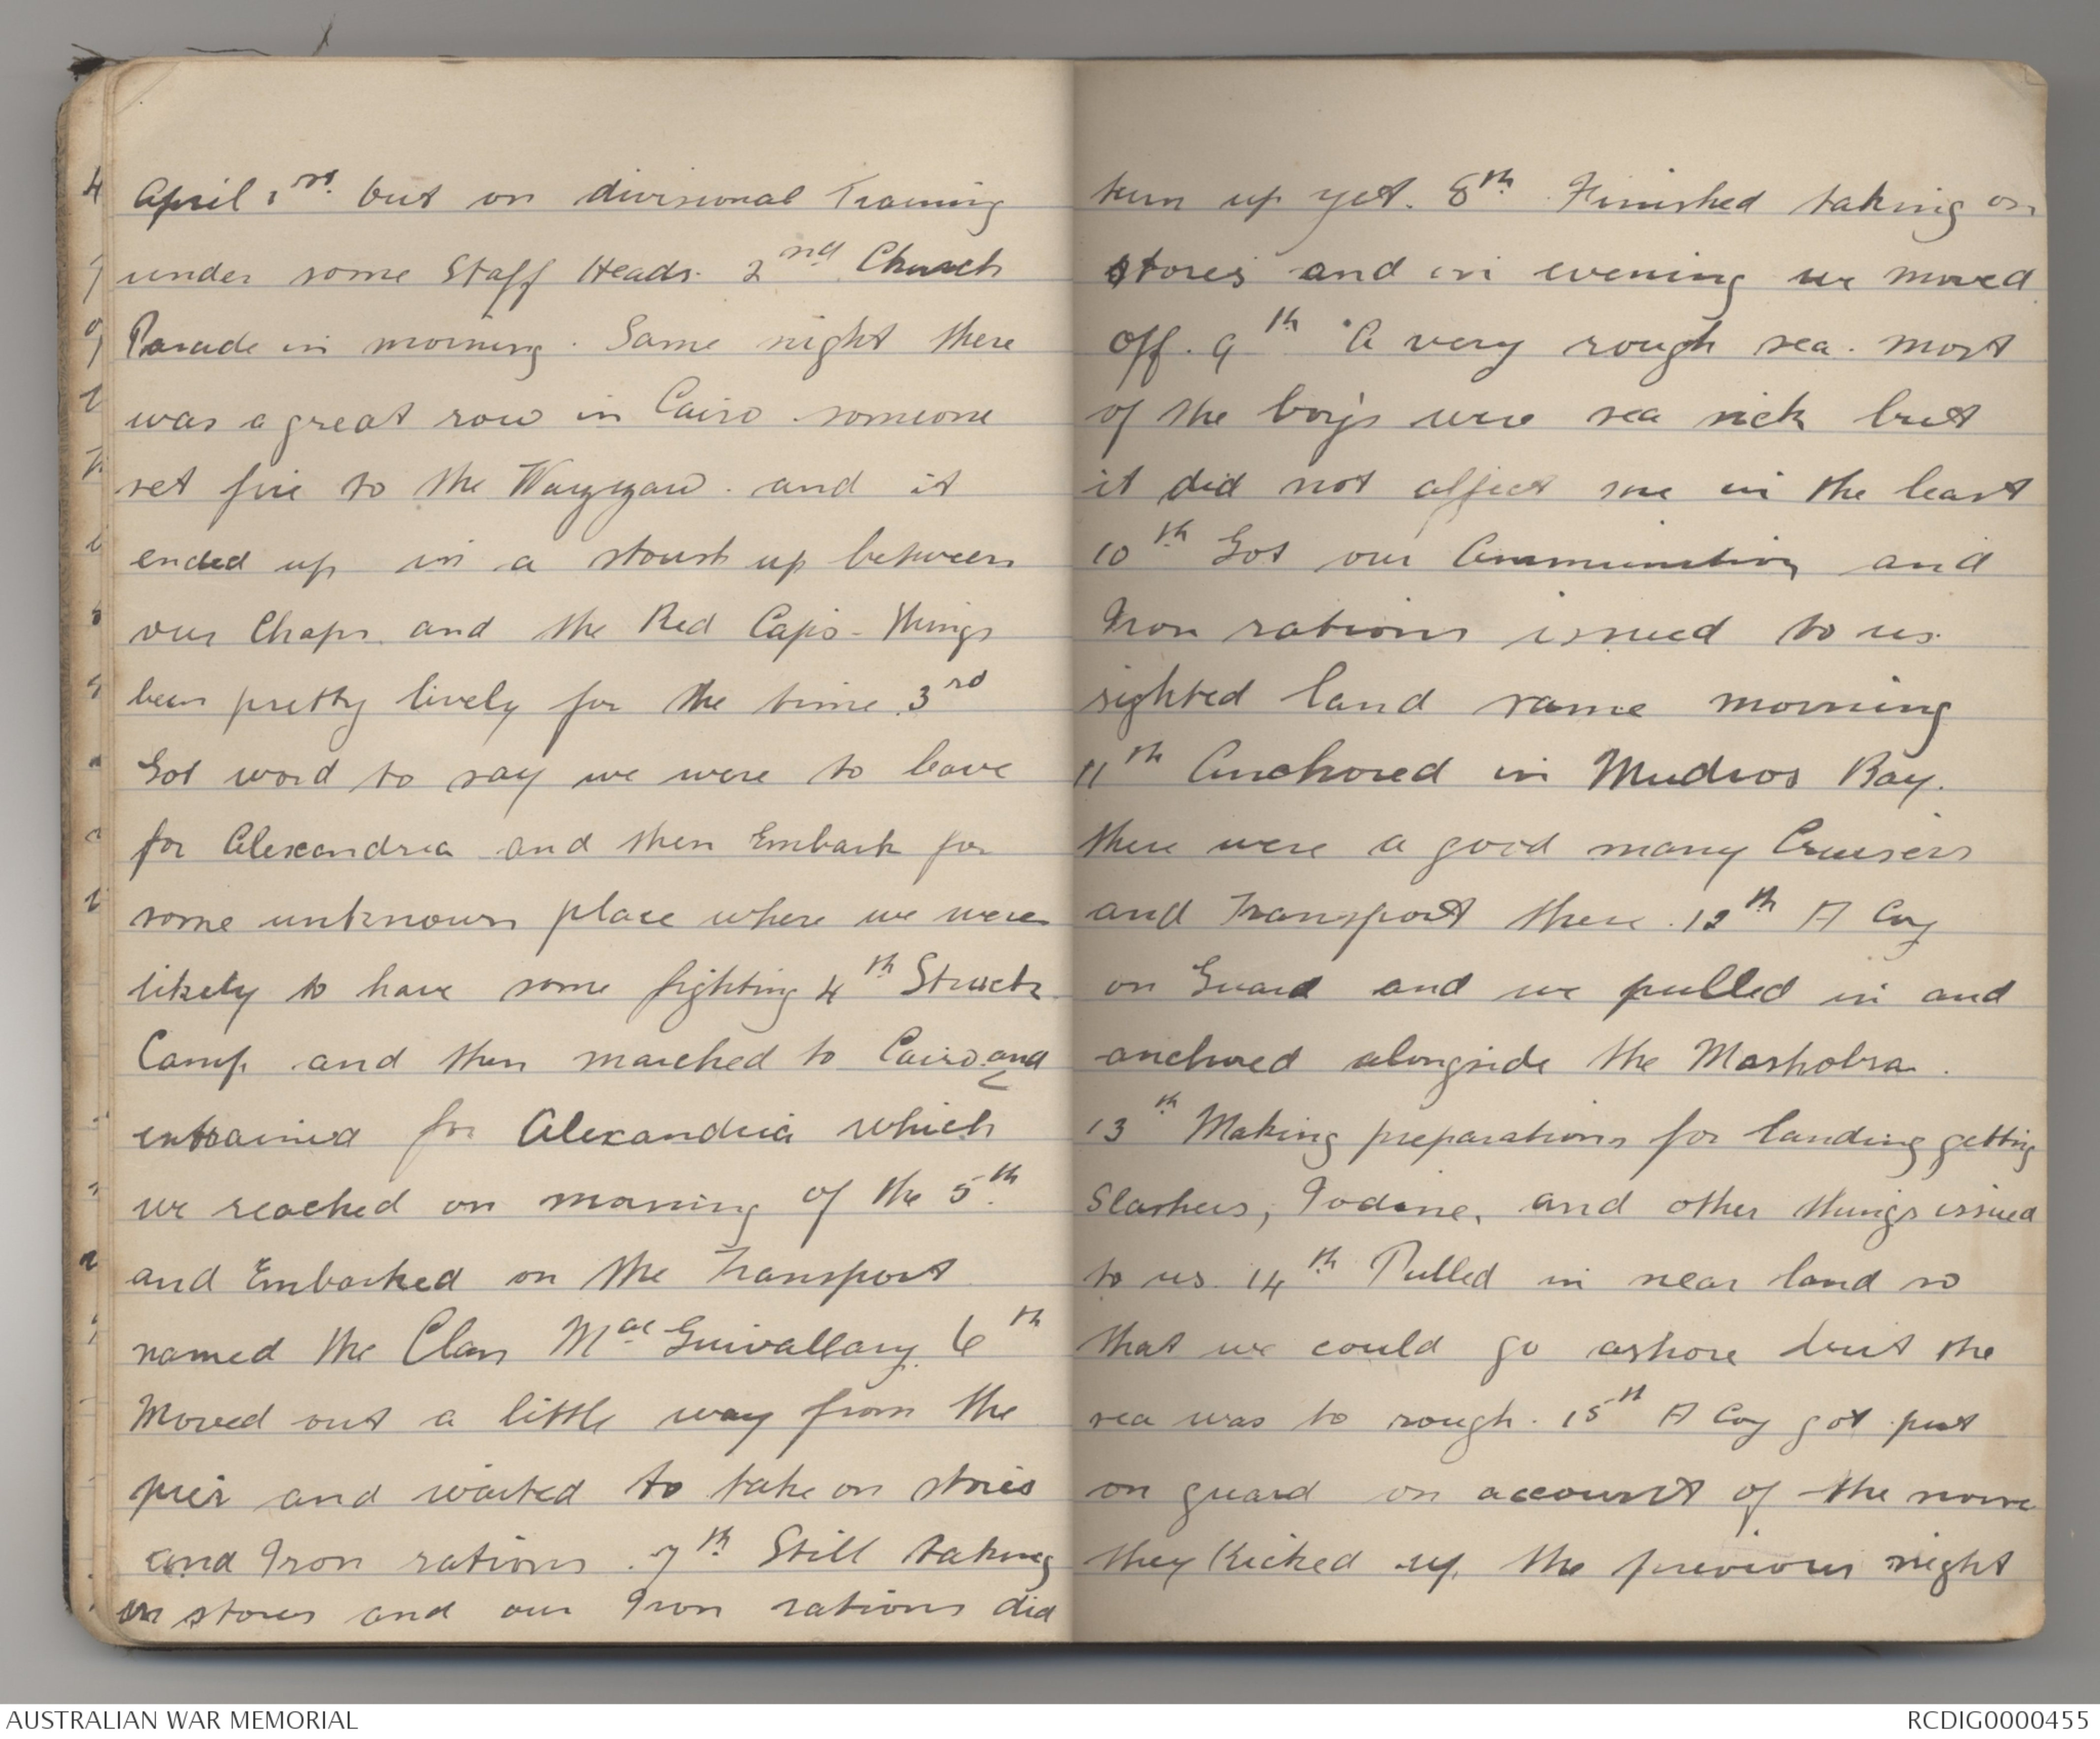 April 1st. out on divisional Training
under some Staff Heads. 2nd Church
Parade in morning. Same night there
was a great row in Cairo. someone
set fire to the Wazzzaw. and it
ended up in a stoush up between
our Chaps. and the Red Caps - things
been pretty lively for the time. 3rd
Got word to say we were to leave
for Alexandria and then Embark for
some unknown place where we were
likely to have some fighting 4th Struck
Camp. and then marched to Cairo. and
entrained for Alexandria which
we reached on morning of the 5th.
and Embarked on the Transport
named the Clan Mac Guivallary. 6th
Moved out a little way from the
pier and waited to take on stores
and Iron rations. 7th. Still taking
on stores and our Iron rations did
turn up yet. 8th. Finished taking on
stores and in evening we moved
off. 9th A very rough sea. most
of the boys were sea sick but
it did not affect me in the least
10th Got our Ammunition and
Iron rations issued to us.
sighted land same morning
11th Anchored in Mudros Bay.
there were a good many Cruisers
and Transport there. 12th A Coy
on Guard and we pulled in and
anchored alongside the Mashobra.
13th Making preparations for landing getting
Slashers, Iodine, and other things issued
to us. 14th Pulled in near land so
that we could go ashore but the
sea was to rough. 15th A Coy got put
on guard on account of the noise
they kicked up. the previous night
AUSTRALIAN WAR MEMORIAL
RCDIG0000455